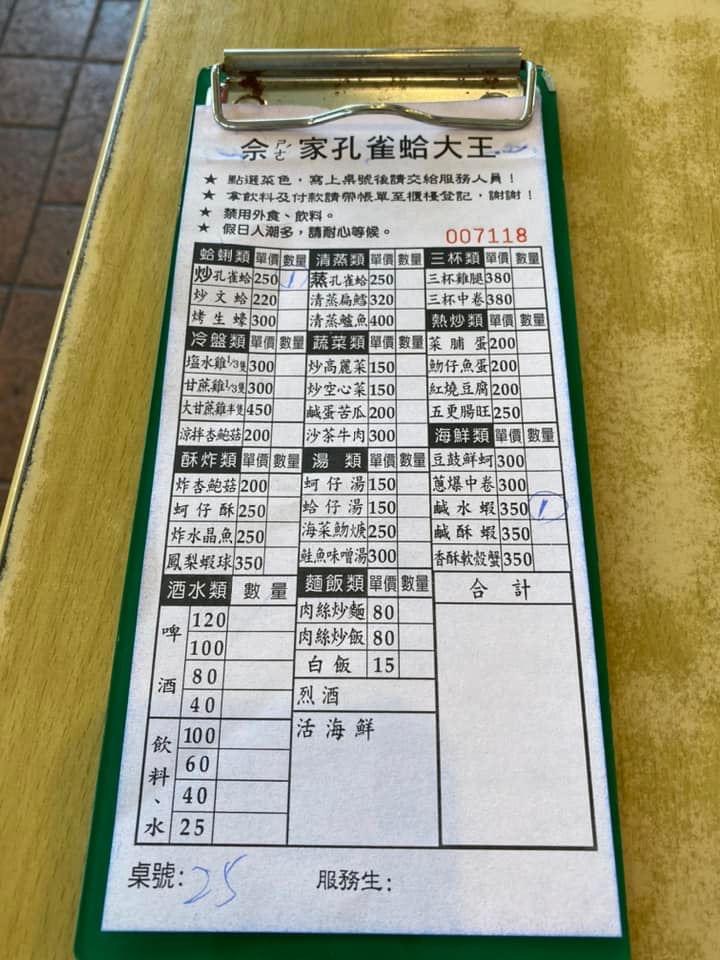 佘ㄕㄜˊ家孔雀蛤大王
★ 點選菜色，寫上桌號後請交給服務人員！
★ 拿飲料及付款請帶帳單至櫃檯登記，謝謝！
★ 禁用外食、飲料。
★ 假日人潮多，請耐心等候。
007118
蛤蜊類 單價 數量 清蒸類 單價 數量 三杯類 單價 數量
炒孔雀蛤 250 1 蒸孔雀蛤 250 三杯雞腿 380
炒文蛤 220 清蒸扁鱈 320 三杯中卷 380
烤生蠔 300 清蒸鱸魚 400 熱炒類 單價 數量
冷盤類 單價 數量 蔬菜類 單價 數量 菜脯蛋 200
塩水雞1/3隻 300 炒高麗菜 150 魩仔魚蛋 200
甘蔗雞1/3隻 300 炒空心菜 150 紅燒豆腐 200
大甘蔗雞半隻 450 鹹蛋苦瓜 200 五更腸旺 250
涼拌杏鮑菇 200 沙茶牛肉 300 海鮮類 單價 數量
酥炸類 單價 數量 湯類 單價 數量 豆鼓鮮蚵 300
炸杏鮑菇 200 蚵仔湯 150 蔥爆中卷 300
蚵仔酥 250 蛤仔湯 150 鹹水蝦 350 1
炸水晶魚 250 海菜魩焿 250 鹹酥蝦 350
鳳梨蝦球 350 鮭魚味噌湯 300 香酥軟殼蟹 350
酒水類 數量 麵飯類 單價 數量 合計
啤酒 120 肉絲炒麵 80
100 肉絲炒飯 80
80 白飯 15
40 烈酒
飲料、水 100 活海鮮
60
40
25
桌號：25 服務生：